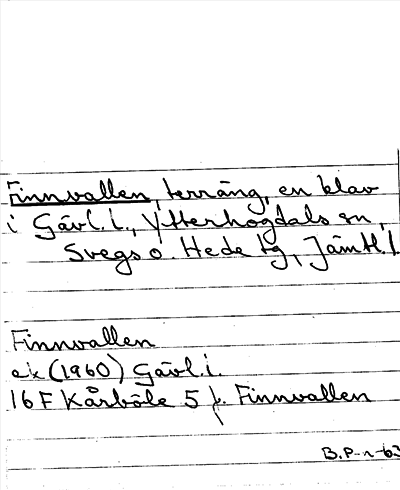 Finnvallen, terräng, en klav
i Gävl.l., Ytterhogdals sn,
Svegs o. Hede tg, Jämtl. l
Finnvallen
ek (1960) Gävl.l.
16F Kårböle 5 f. Finnvallen
B.P-n-63